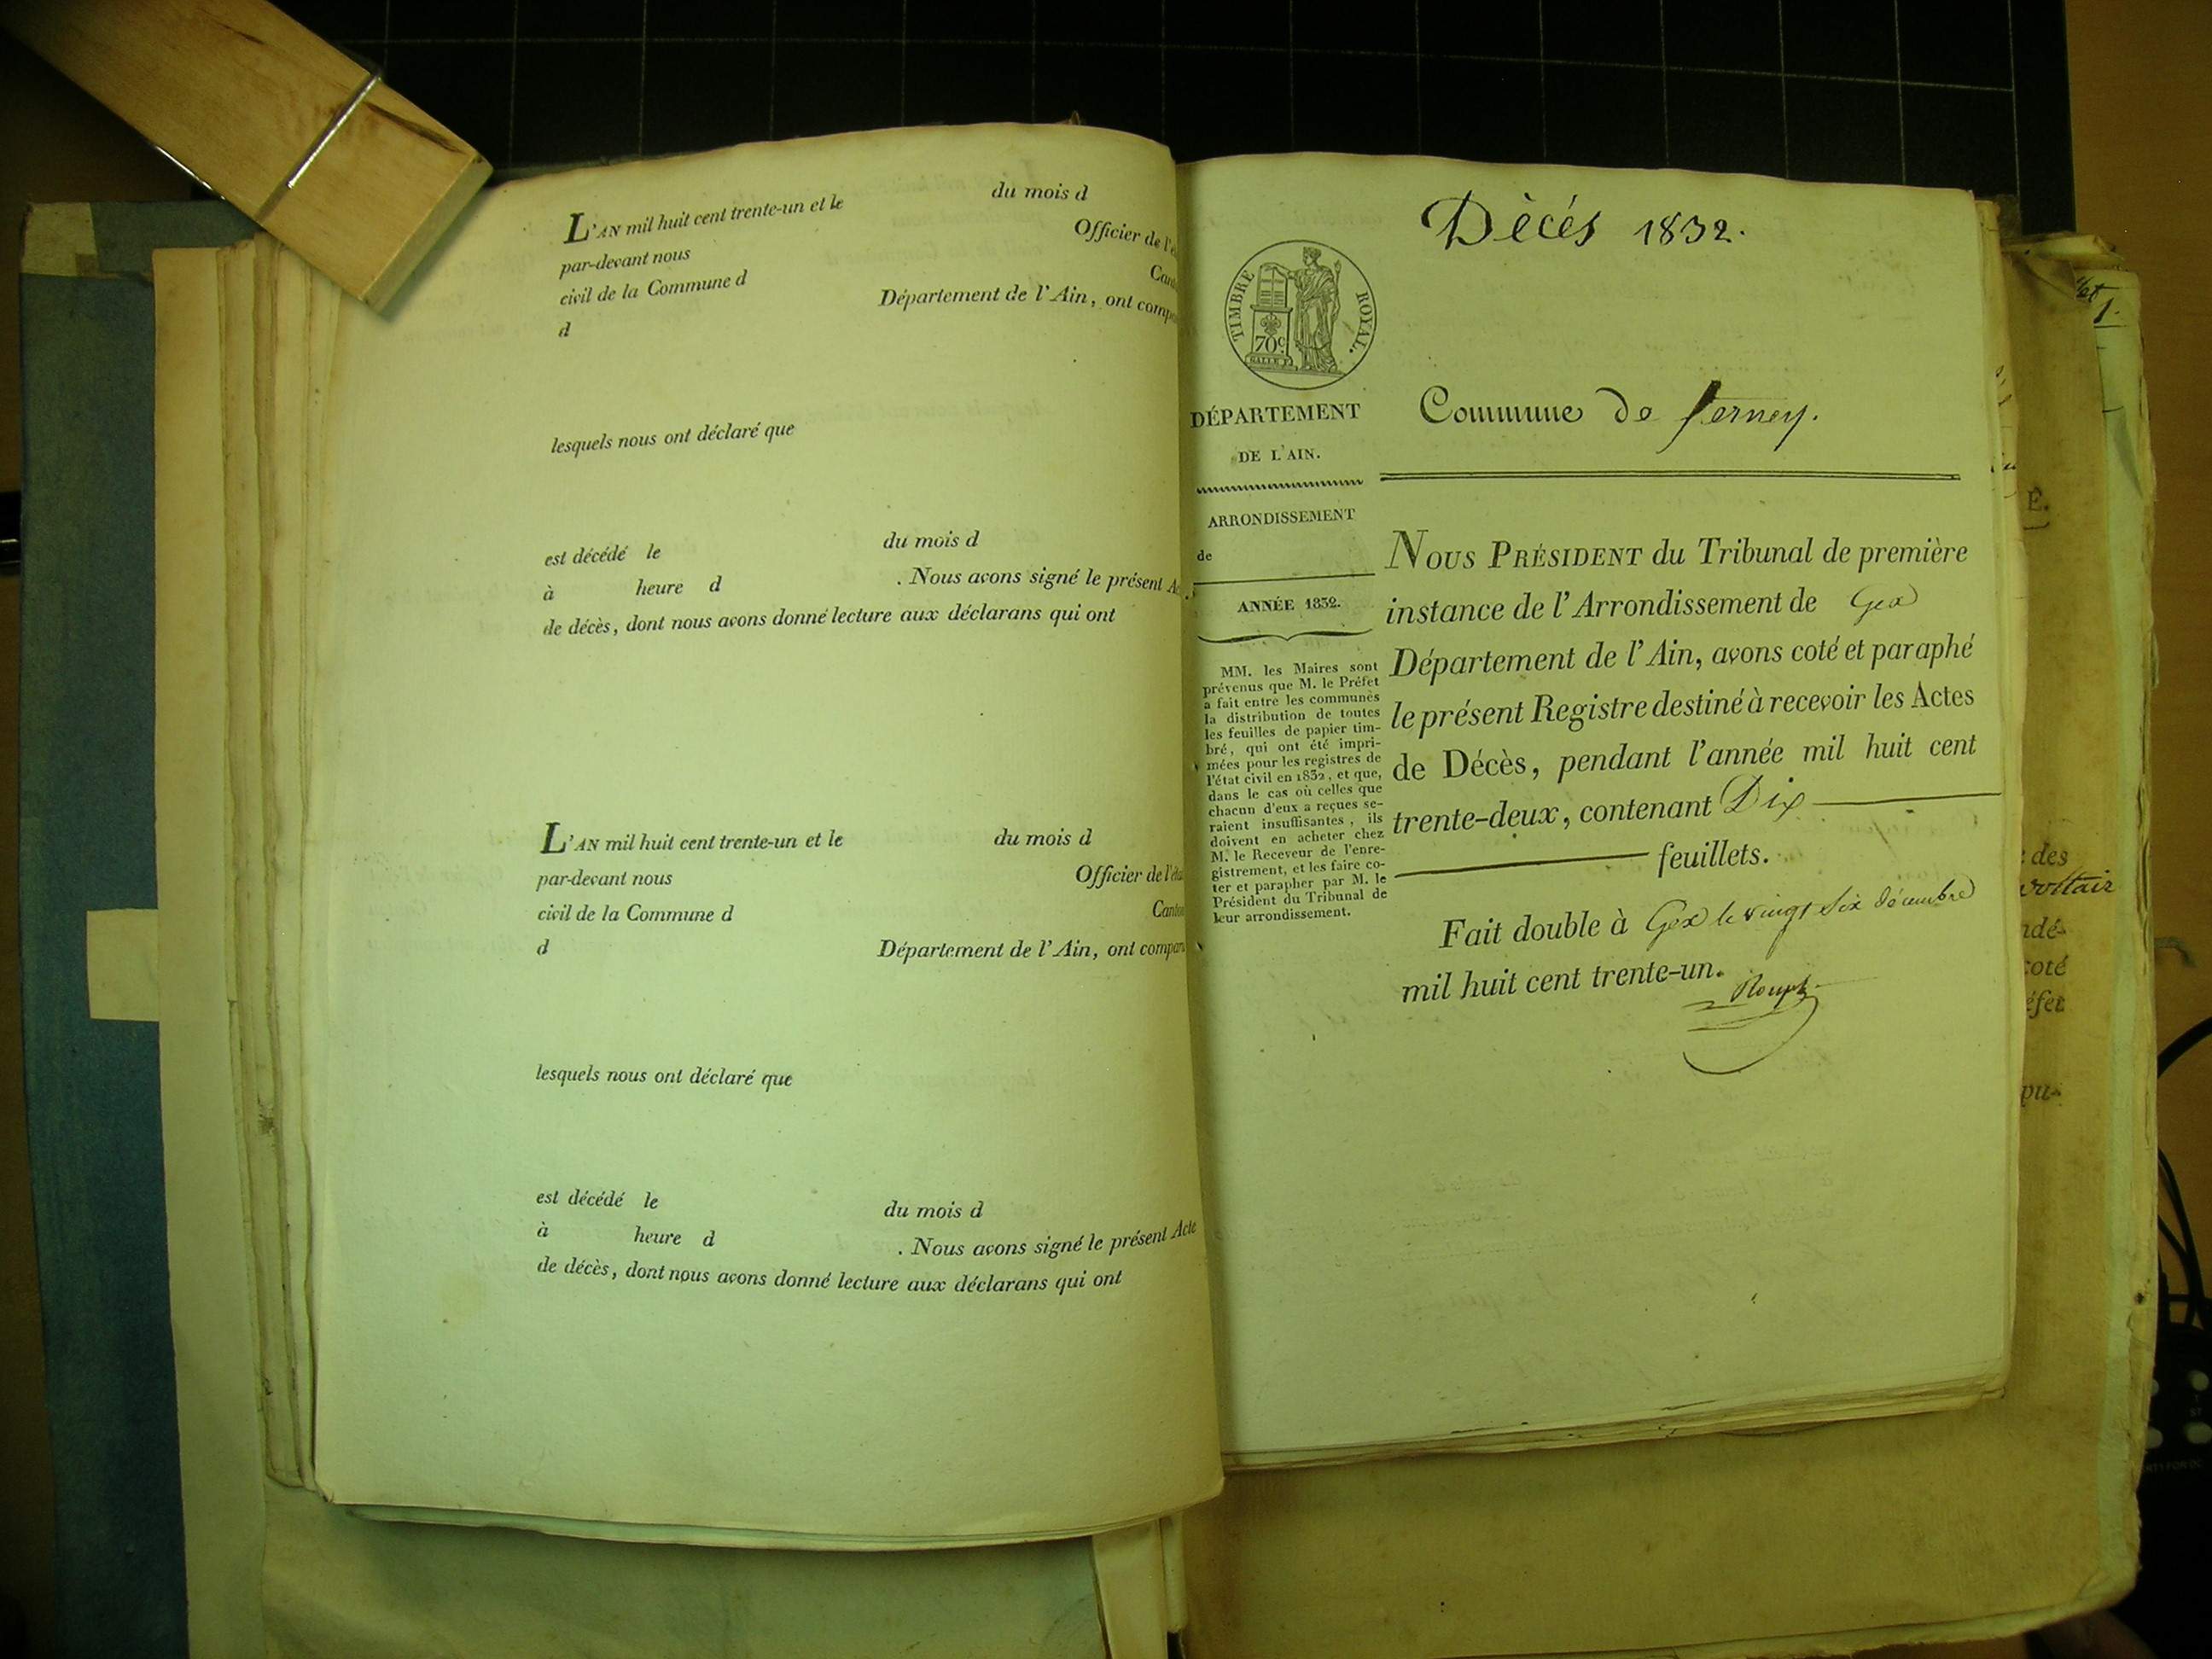 L'AN mil huit cent trente-un et le du mois d
par-devant nous Officier de l'é
civil de la Commune d Cant
d Département de l'Ain, ont comp
lesquels nous ont déclaré que
est décédé le du mois d
à heure d . Nous avons signé le présent Ac
de décès, dont nous avons donné lecture aux déclarans qui ont
L'AN mil huit cent trente-un et le du mois d
par-devant nous Officier de l'éta
civil de la Commune d Canton
d Département de l'Ain, ont compar
lesquels nous ont déclaré que
est décédé le du mois d
à heure d . Nous avons signé le présent Acte
de décès, dont nous avons donné lecture aux déclarans qui ont
Décés 1832.
TIMBRE ROYAL.
70c
DÉPARTEMENT
DE L'AIN.
ARRONDISSEMENT
de
ANNÉE 1832.
MM. les Maires sont
prévenus que M. le Préfet
a fait entre les communes
la distribution de toutes
les feuilles de papier tim-
bré, qui ont été impri-
mées pour les registres de
l'état civil en 1832, et que,
dans le cas où celles que
chacun d'eux a reçues se-
raient insuffisantes, ils
doivent en acheter chez
M. le Receveur de l'enre-
gistrement, et les faire co-
ter et parapher par M. le
Président du Tribunal de
leur arrondissement.
Commune de ferney.
NOUS PRÉSIDENT du Tribunal de première
instance de l'Arrondissement de Gex
Département de l'Ain, avons coté et paraphé
le présent Registre destiné à recevoir les Actes
de Décès, pendant l'année mil huit cent
trente-deux, contenant Dix
feuillets.
Fait double à Gex le vingt six décembre
mil huit cent trente-un.
E.
des
voltair
ndé-
coté
éfet
pu-